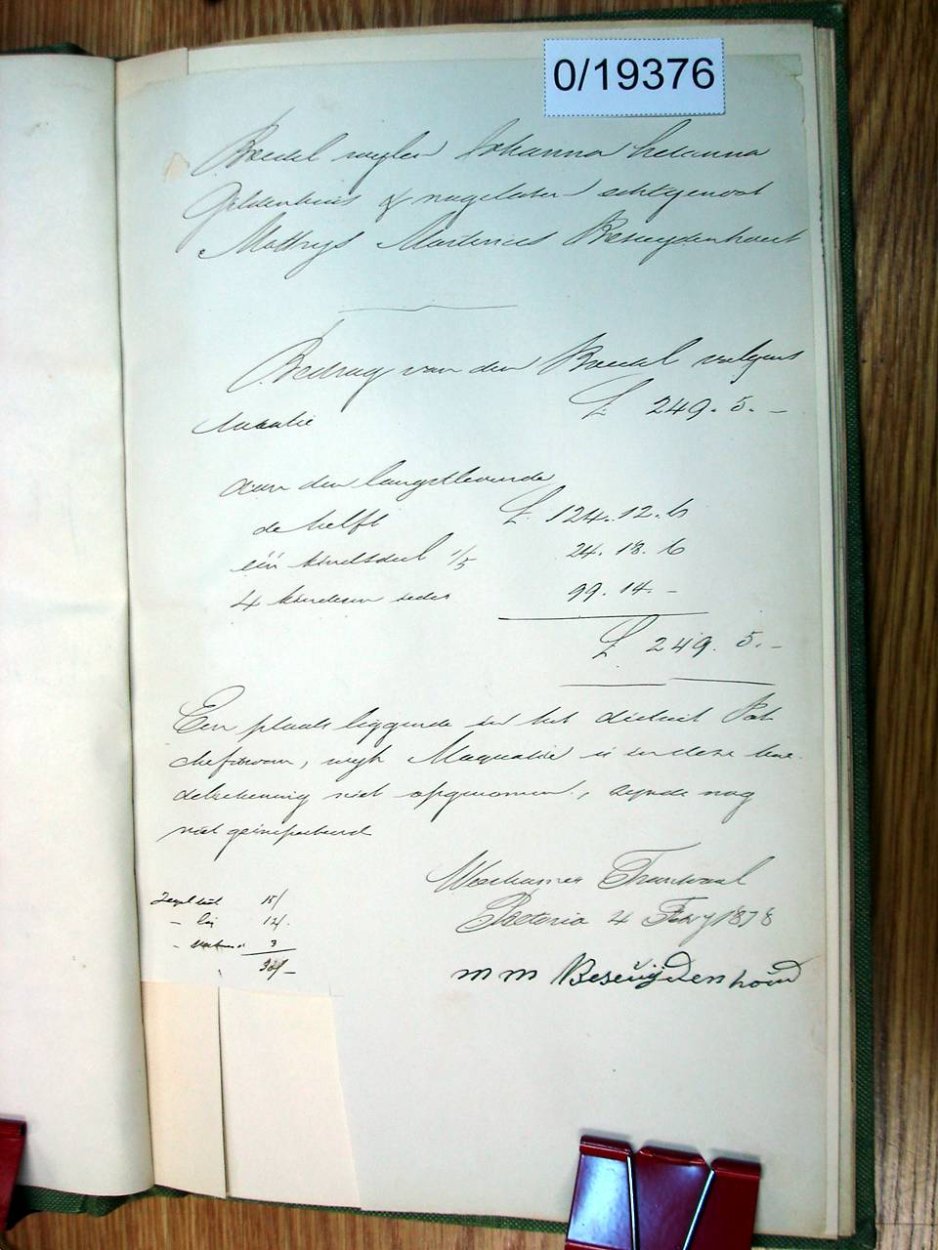 0/19376
Boedel wylen Johanna Helanna
Gildenhuis & nagelaten echtgenoot
Matthys Martinus Besuydenhout
Bedrag van den Boedel volgens
taxatie £ 249. 5. -
aan den langstlevende
de helft £ 124. 12. 6
één kindsdeel 1/5 24. 18. 6
4 kinderen ieder 99. 14. -
£ 249. 5. -
Een plaats liggende in het district Pot
chefstroom, wyk Maquasie is in deze boe-
delrekening niet opgenomen, zynde nog
niet geinspecteerd
Weeskamer Transvaal
Pretoria 4 Feby 1878
Zegel 15/
12/.
3
30/-
m m Beseuijdenhoud